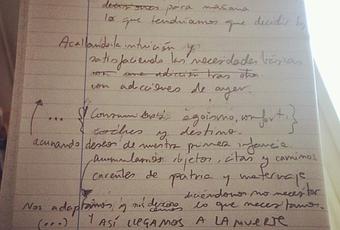 decisiones para mañana
lo que tendríamos que decidir
Acallando la intuición y
satisfaciendo las necesidades básicas
con una adicción tras otra
con adicciones de ayer.
... { egoísmo, confort, }
coches y destino.
acunando deseos de nuestra primera infancia
acumulamos objetos, citas y caminos
carentes de patria y
diciéndonos no necesitar
Nos adaptamos, y lo que necesitamos.
(...) Y ASÍ LLEGAMOS A LA MUERTE